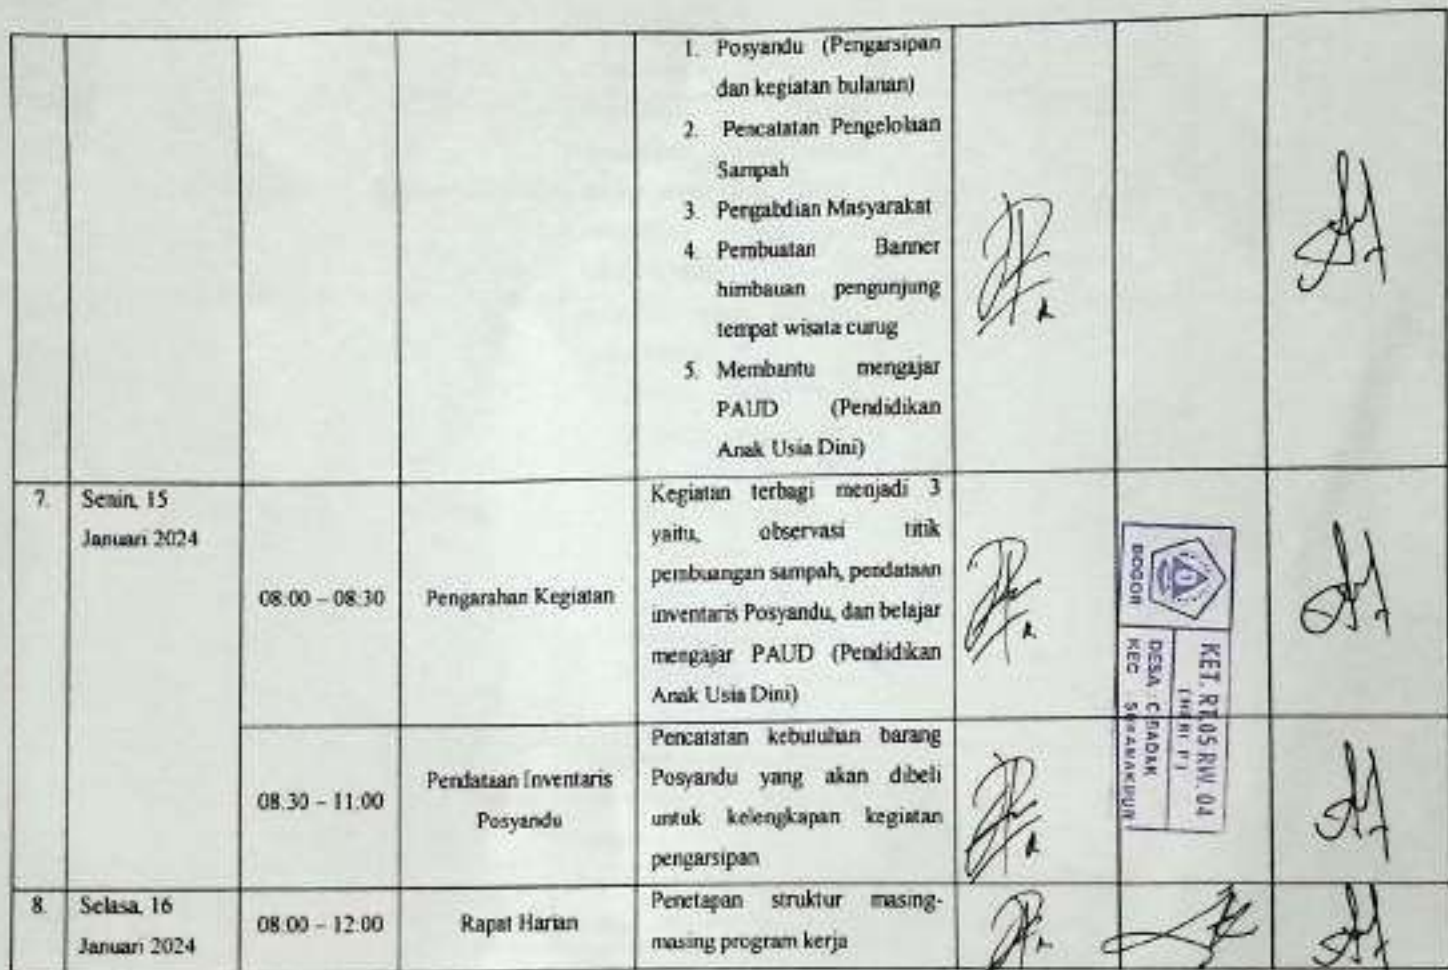 1. Posyandu (Pengarsipan
dan kegiatan bulanan)
2. Pencatatan Pengelolaan
Sampah
3. Pengabdian Masyarakat
4. Pembuatan Banner
himbauan pengunjung
tempat wisata curug
5. Membantu mengajar
PAUD (Pendidikan
Anak Usia Dini)
7. Senin, 15
Januari 2024
08.00 – 08.30
Pengarahan Kegiatan
Kegiatan terbagi menjadi 3
yaitu, observasi titik
pembuangan sampah, pendataan
inventaris Posyandu, dan belajar
mengajar PAUD (Pendidikan
Anak Usia Dini)
BOGOR
KET. RT.05 RW. 04
DESA : CIBADAK
KEC : SUKAMAKMUR
08.30 – 11:00
Pendataan Inventaris
Posyandu
Pencatatan kebutuhan barang
Posyandu yang akan dibeli
untuk kelengkapan kegiatan
pengarsipan
8. Selasa, 16
Januari 2024
08.00 – 12:00
Rapat Harian
Penetapan struktur masing-
masing program kerja